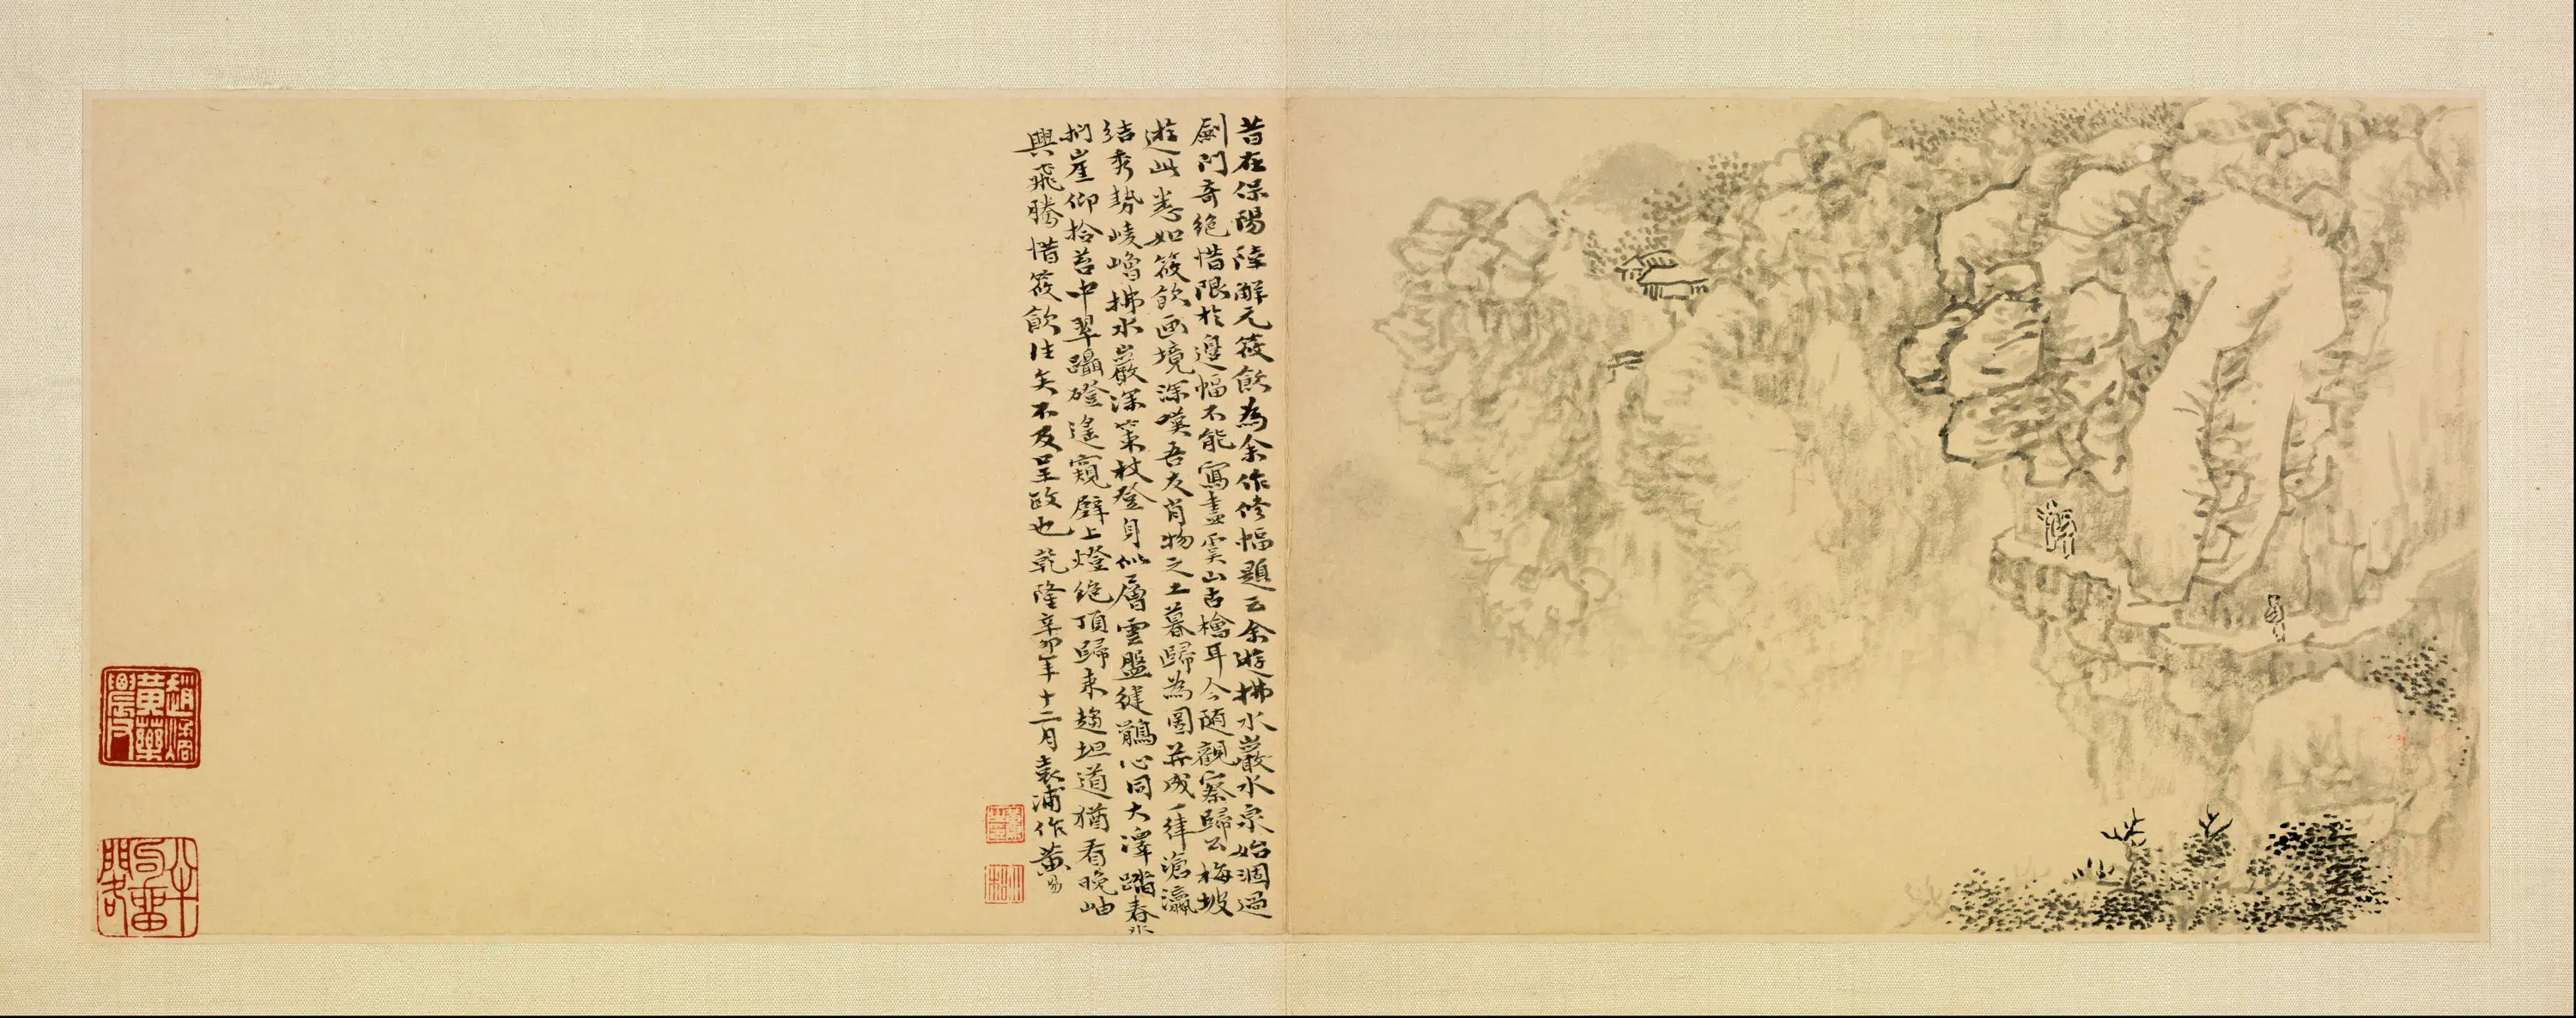 昔在保陽陸解元筱飲為余作修幅題云余遊拂水巖水泉始涸過
劍門奇絕惜限於邊幅不能寫盡虞山古檜耳今隨觀察歸公梅坡
遊此悉如筱飲画境深嘆吾友肖物之工暮歸為圖并成一律滄瀛
結秀勢崚嶒拂水巖深策杖登身似層雲盤健鶻心同大澤踏春冰
捫崖仰拾苔中翠躡磴遙窺壁上燈絕頂歸来趨坦道猶看晚岫
興飛騰惜筱飲往矣不及呈政也乾隆辛卯年十二月袁浦作黃易
小松